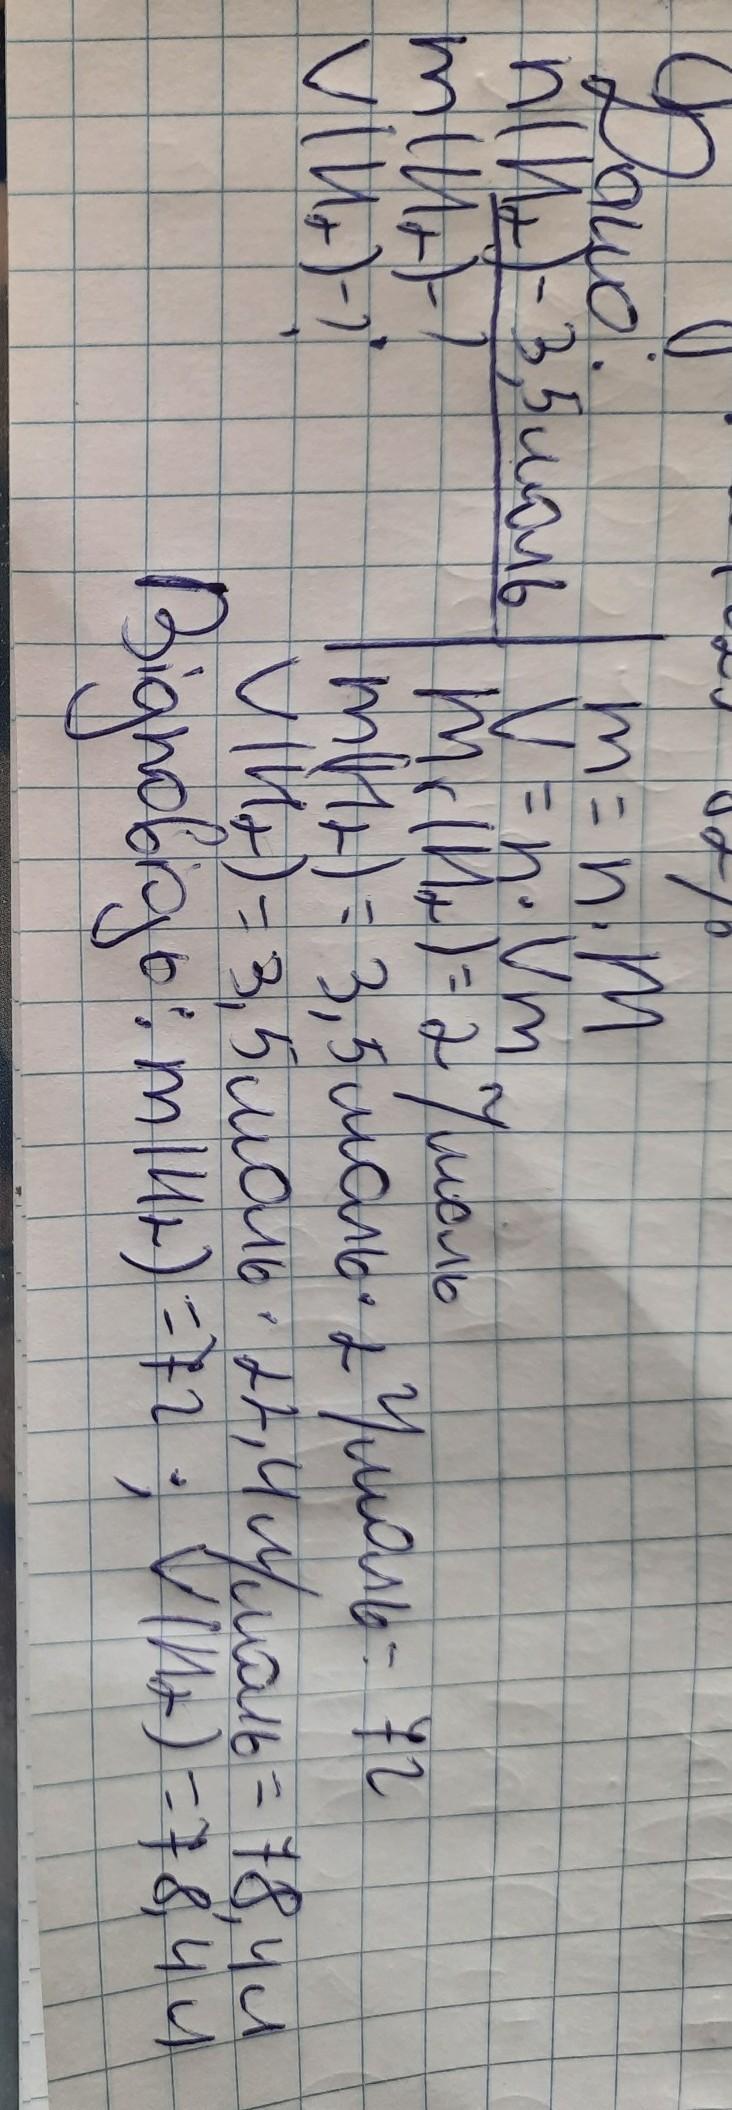 Дано:
n(H₂) - 3,5 моль
m(H₂) - ?
V(H₂) - ?
m = n · M
V = n · Vm
Mr(H₂) = 2 г/моль
m(H₂) = 3,5 моль · 2 г/моль = 7г
V(H₂) = 3,5 моль · 22,4 л/моль = 78,4 л
Відповідь: m(H₂) = 7г ; V(H₂) = 78,4 л